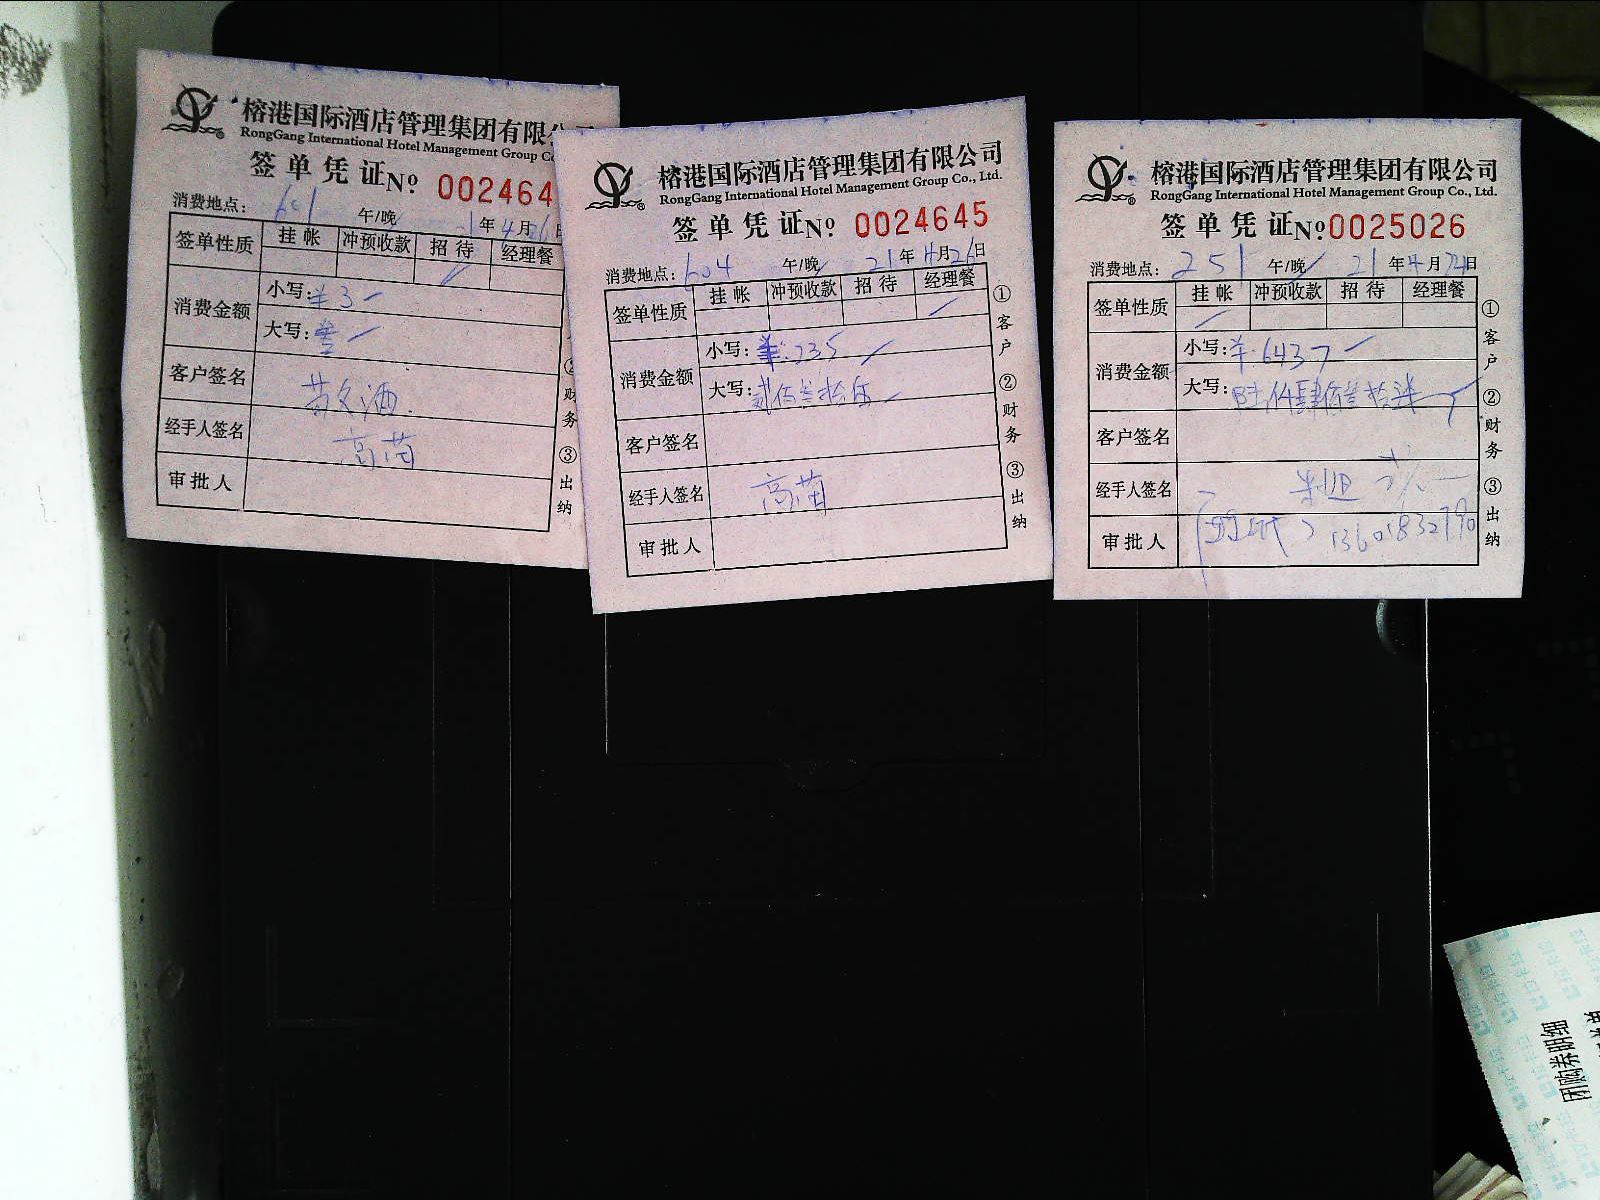 榕港国际酒店管理集团有限
RongGang International Hotel Management Group Co
签单凭证 No 002464
消费地点: 601 午/晚 21年4月26日
签单性质 挂帐 冲预收款 招待 经理餐
消费金额 小写: ¥3
大写: 叁
客户签名
经手人签名 高苗
审批人
② 财务 ③ 出纳
榕港国际酒店管理集团有限公司
RongGang International Hotel Management Group Co., Ltd.
签单凭证 No 0024645
消费地点: 604 午/晚 21年4月26日
签单性质 挂帐 冲预收款 招待 经理餐
消费金额 小写: ¥:235
大写: 贰佰叁拾伍
客户签名
经手人签名 高苗
审批人
① 客户 ② 财务 ③ 出纳
榕港国际酒店管理集团有限公司
RongGang International Hotel Management Group Co., Ltd.
签单凭证 No 0025026
消费地点: 251 午/晚 21年4月24日
签单性质 挂帐 冲预收款 招待 经理餐
消费金额 小写: ¥:6437
大写: 陆仟肆佰叁拾柒
客户签名
经手人签名
审批人 13601832790
① 客户 ② 财务 ③ 出纳
团购券明细